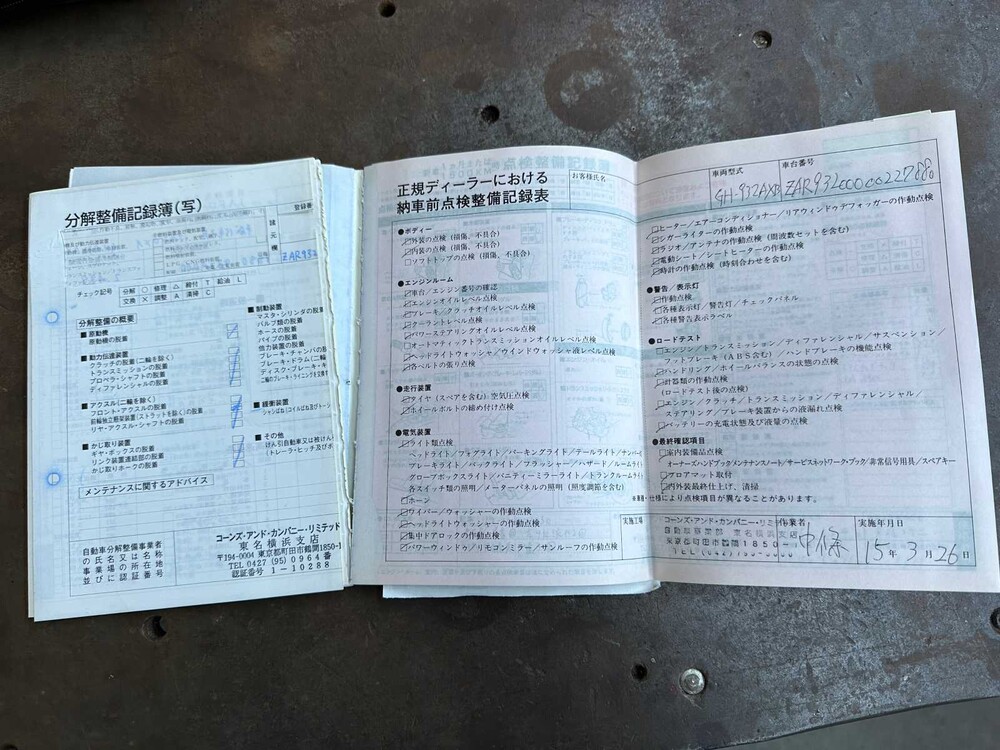 分解整備記録簿(写)
登録番
諸元
機
ZAR932
チェック記号 分解 ○ 修理 △ 締付 T 給油 L
交換 × 調整 A 清掃 C
分解整備の概要
■ 原動機
原動機の脱着
■ 動力伝達装置
クラッチの脱着(二輪を除く)
トランスミッションの脱着
プロペラ・シャフトの脱着
ディファレンシャルの脱着
■ アクスル(二輪を除く)
フロント・アクスルの脱着
前輪独立懸架装置(ストラットを除く)の脱着
リヤ・アクスル・シャフトの脱着
■ かじ取り装置
ギヤ・ボックスの脱着
リンク装置連結部の脱着
かじ取りホークの脱着
■ 制動装置
マスタ・シリンダの脱
バルブ類の脱着
ホースの脱着
パイプの脱着
倍力装置の脱着
ブレーキ・チャンバの脱
ブレーキ・ドラム(二輪
ディスク・ブレーキ・キ
■ 緩衝装置
シャシばね(コイルばね及びトーシ
■ その他
けん引自動車又は被けん
(トレーラ・ヒッチ及びボ
メンテナンスに関するアドバイス
自動車分解整備事業者
の氏名又は名称
事業場の所在地
並びに認証番号
コーンズ・アンド・カンパニー・リミテッド
東名横浜支店
〒194-0004 東京都町田市鶴間1850-1
TEL 0427 (95) 0964 番
認証番号 1-10288
正規ディーラーにおける
納車前点検整備記録表
お客様氏名
●ボディー
外装の点検 (損傷、不具合)
内装の点検 (損傷、不具合)
ソフトトップの点検 (損傷、不具合)
●エンジンルーム
車台/エンジン番号の確認
エンジンオイルレベル点検
ブレーキ/クラッチオイルレベル点検
クーラントレベル点検
パワーステアリングオイルレベル点検
オートマティックトランスミッションオイルレベル点検
ヘッドライトウォッシャ/ウインドウォッシャ液レベル点検
各ベルトの張り点検
●走行装置
タイヤ (スペアを含む) 空気圧点検
ホイールボルトの締め付け点検
●電気装置
ライト類点検
ヘッドライト/フォグライト/パーキングライト/テールライト/ナンバー
ブレーキライト/バックライト/フラッシャー/ハザード/ルームライト
グローブボックスライト/バニティーミラーライト/トランクルームライト
各スイッチ類の照明/メーターパネルの照明 (照度調節を含む)
ホーン
ワイパー/ウォッシャーの作動点検
ヘッドライトウォッシャーの作動点検
集中ドアロックの作動点検
パワーウィンドウ/リモコンミラー/サンルーフの作動点検
車両型式
GH-932AXB
車台番号
ZAR93200000227888
ヒーター/エアーコンディショナー/リアウィンドゥデフォッガーの作動点検
シガーライターの作動点検
ラジオ/アンテナの作動点検 (周波数セットを含む)
電動シート/シートヒーターの作動点検
時計の作動点検 (時刻合わせを含む)
●警告/表示灯
作動点検
各種表示灯/警告灯/チェックパネル
各種警告表示ラベル
●ロードテスト
エンジン/トランスミッション/ディファレンシャル/サスペンション/
フットブレーキ (ABS含む)/ハンドブレーキの機能点検
ハンドリング/ホイールバランスの状態の点検
計器類の作動点検
(ロードテスト後の点検)
エンジン/クラッチ/トランスミッション/ディファレンシャル/
ステアリング/ブレーキ装置からの液漏れ点検
バッテリーの充電状態及び液量の点検
●最終確認項目
室内装備品点検
オーナーズハンドブック/メンテナンスノート/サービスネットワーク・ブック/非常信号用具/スペアキー
フロアマット取付
内外装最終仕上げ、清掃
※車種・仕様により点検項目が異なることがあります。
実施工場
コーンズ・アンド・カンパニー・リミテ
自動車事業部 東名横浜支店
東京都町田市鶴間1850
作業者
中條
実施年月日
15年 3月 26日